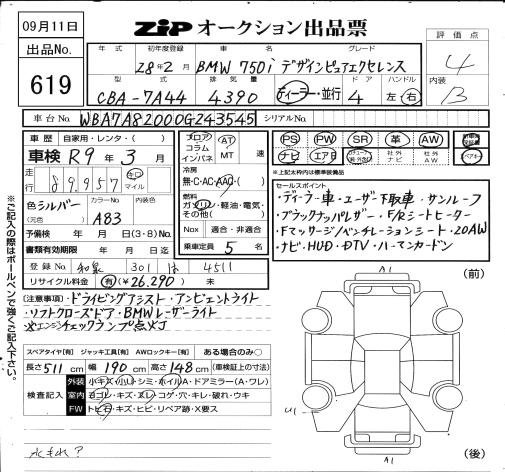 09月11日
出品No.
619
ZIP オークション出品票
評価点
4
内装
B
年式
初年度登録
28年2月
車名
BMW 750i
グレード
デザインピュアエクセレンス
型式
CBA-7A44
排気量
4390
ディーラー・並行
ドア
4
ハンドル
左 右
車台No.
WBA7A82000G243545
シリアルNo.
車歴
自家用・レンタ・( )
車検 R9年 3月
走行
89957
キロ マイル
色 シルバー
(元色)
カラーNo.
A83
内装色
予備検 年 月 日(3・8)Mo.
書類有効期限 年 月 日
登録No.
和泉 301 は 4511
リサイクル料金 有(¥26.290) 未
フロア
コラム
インパネ
AT
MT
速
冷房
無・C・AC・AAC・( )
燃料
ガソリン・軽油・電気・
その他( )
Nox 適合・非適合
乗車定員 5 名
PS PW SR 革 AW
ナビ エアB
社外ナビ
社外AW
※上記太枠内は標準装備品
セールスポイント
・ディーラー車・ユーザー下取車・サンルーフ
・ブラックナッパレザー・F/Rシートヒーター
・Fマッサージ/ベンチレーションシート・20AW
・ナビ・HUD・DTV・ハーマンカードン
(注意事項)・ドライビングアシスト・アンビエントライト
・ソフトクローズドア・BMWレーザーライト
※エンジンチェックランプ点灯
スペアタイヤ[有] ジャッキ工具[有] AWロックキー[有] ある場合のみ○
長さ511cm 幅190cm 高さ148cm (車検証上の寸法)
検査記入
外装 小キズ・小U・シミ・ホイルA・ドアミラー(A・ワレ)
室内 ヨゴレ・キズ・スレ・コゲ・穴・キレ・破れ・ウキ
FW トビ石・キズ・ヒビ・リペア跡・X要ス
水もれ?
※ご記入の際はボールペンで強くご記入下さい。
A1
(前)
U1
A1
(後)